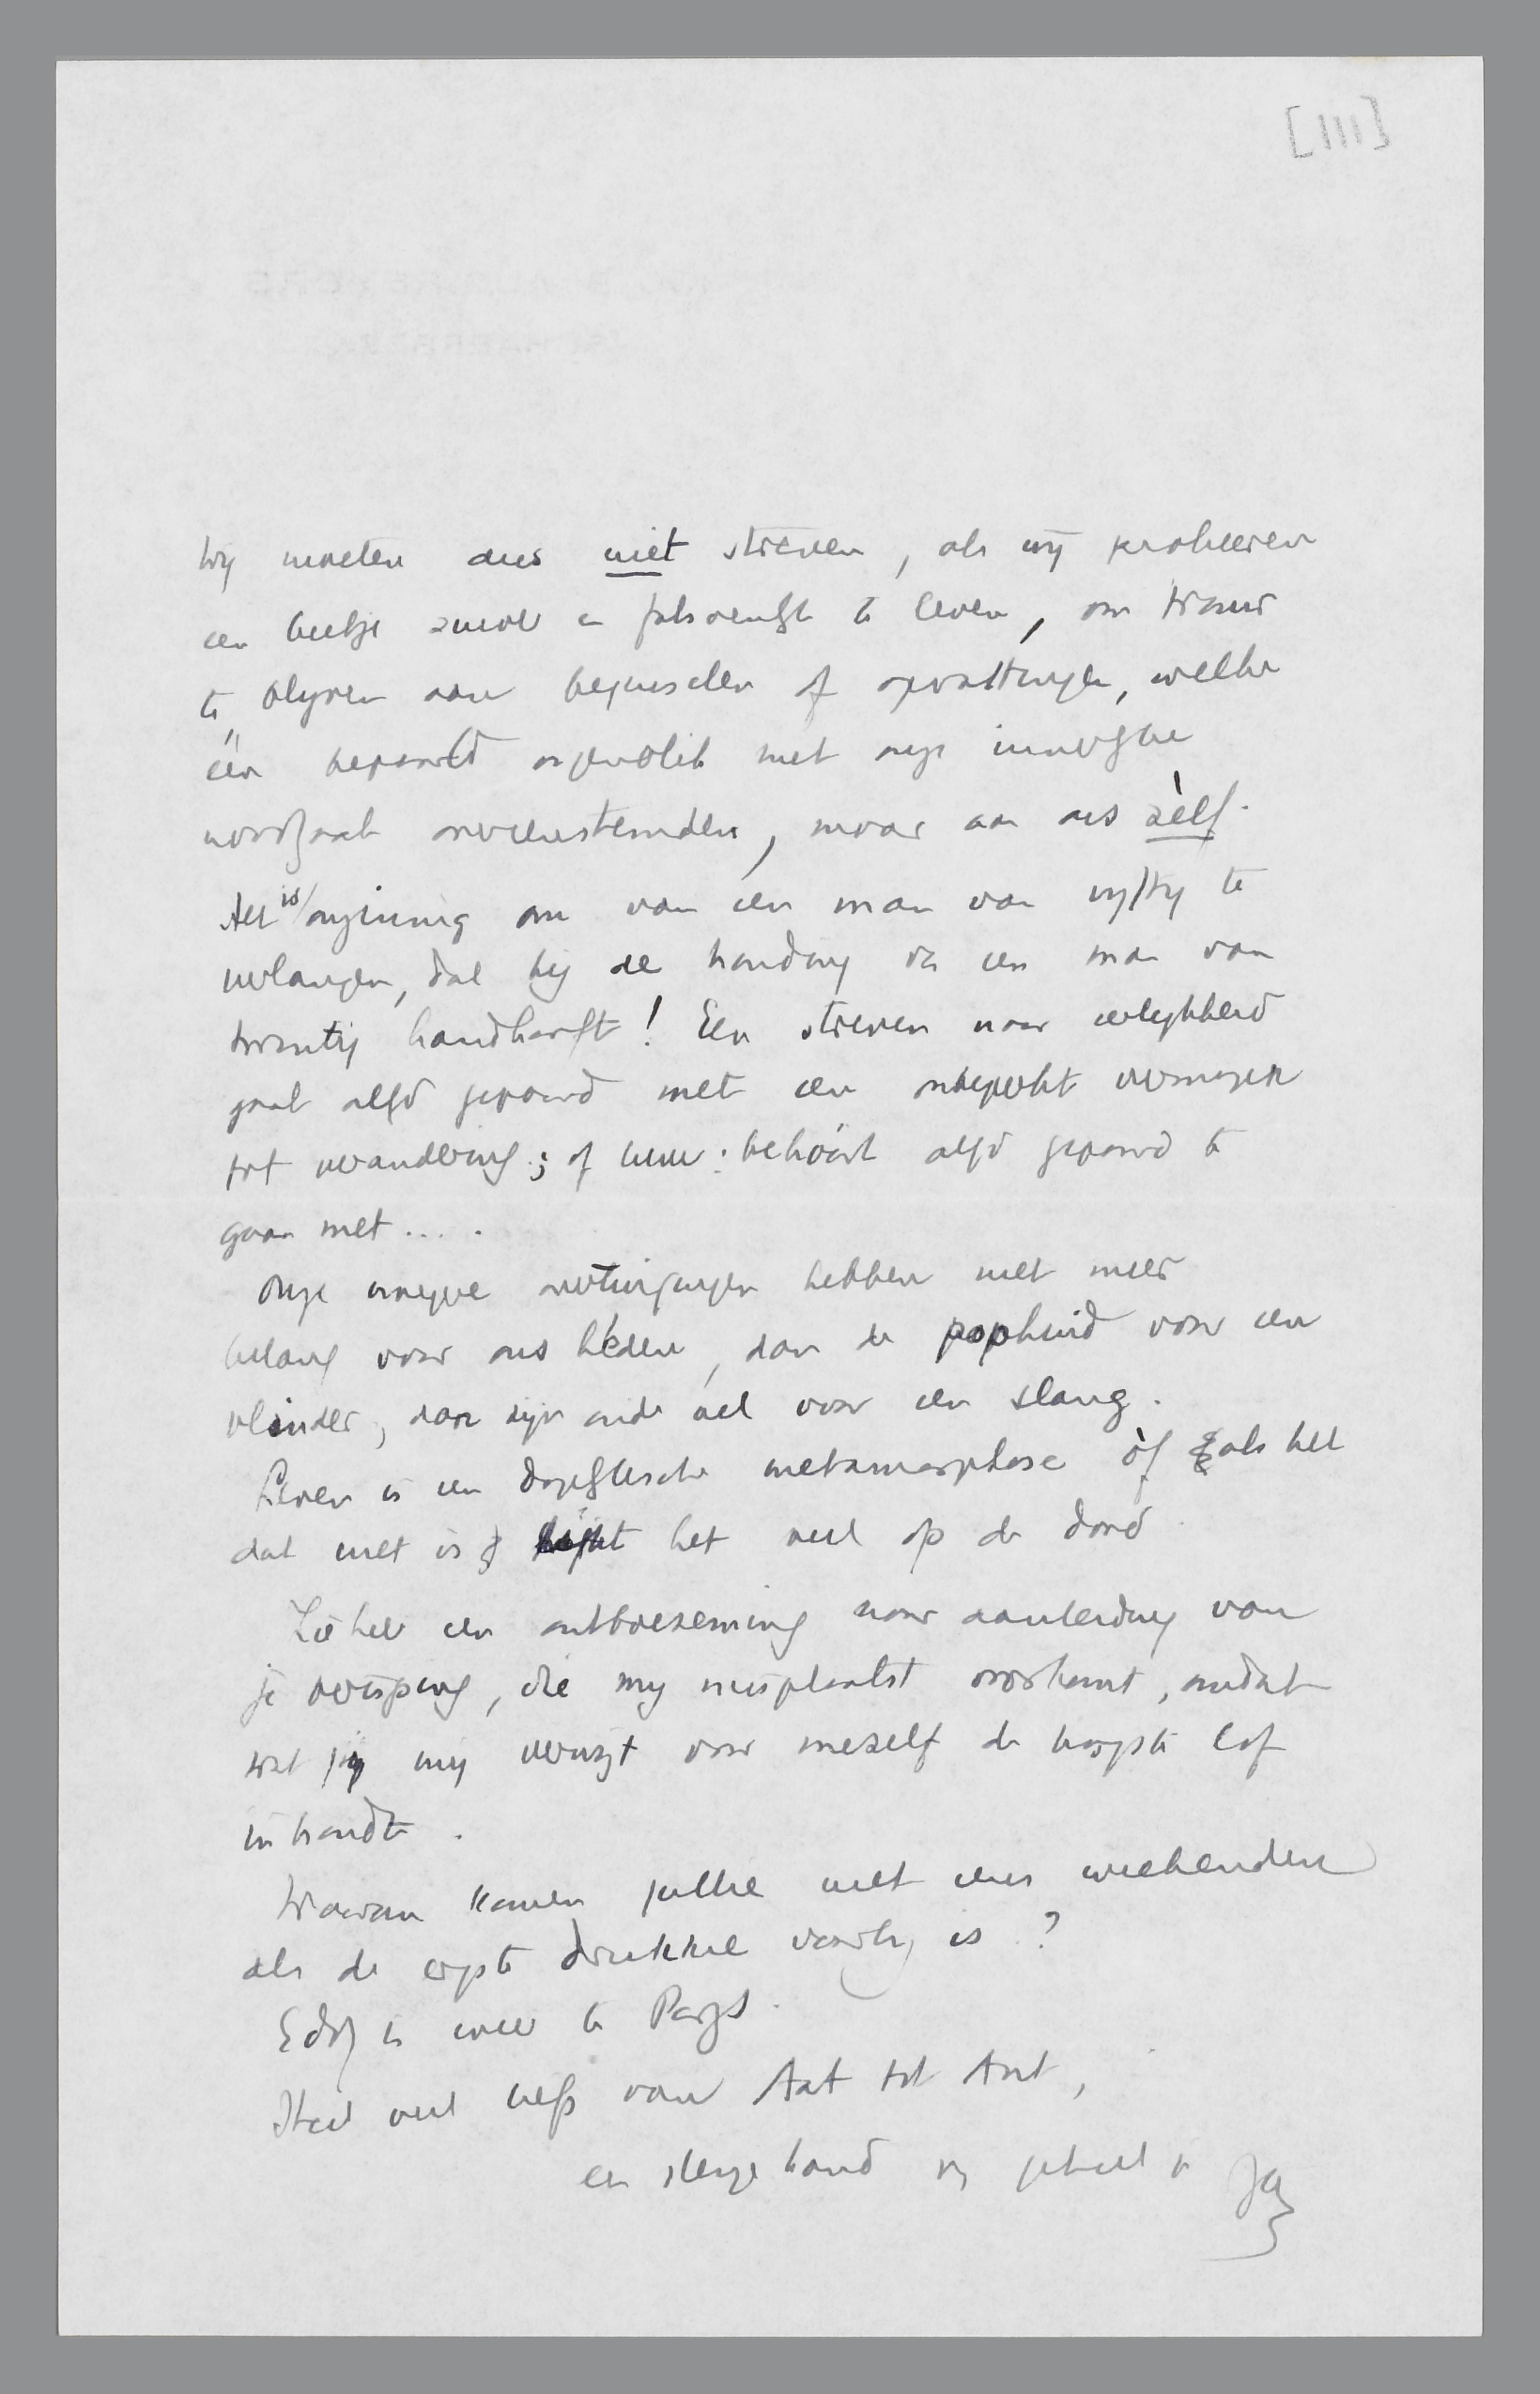 [III]
Wij moeten dus niet streven, als wij probeeren
een beetje zuiver en fatsoenlijk te leven, om trouw
te blijven aan beginselen of opvattingen, welke
één bepaald oogenblik met onze innerlijke
noodzaak overeenstemden, maar aan ons zèlf.
Het is onzinnig om van een man van vijftig te
verlangen, dat hij de houding van een man van
twintig handhaaft! Een streven naar eerlijkheid
gaat altijd gepaard met een onbeperkt vermogen
tot verandering; of liever: behóórt altijd gepaard te
gaan met....
Onze vroegere overtuigingen hebben niet meer
belang voor ons héden, dan de pophuid voor een
vlinder, dan zijn oude vel voor een slang.
Leven is een dagelijksche metamorphose òf als het
dat niet is, lijkt het veel op de dood.
Ziehier een ontboezeming naar aanleiding van
je berisping, die mij misplaatst voorkomt, omdat
wat jij mij verwijt voor mezelf de hoogste lof
inhoudt.
Waarom komen jullie niet eens weekenden
als de ergste drukkte voorbij is?
Eddy is weer te Parijs.
Steeds veel liefs van Aat tot Aat,
een stevige hand v. geheel je
Jan